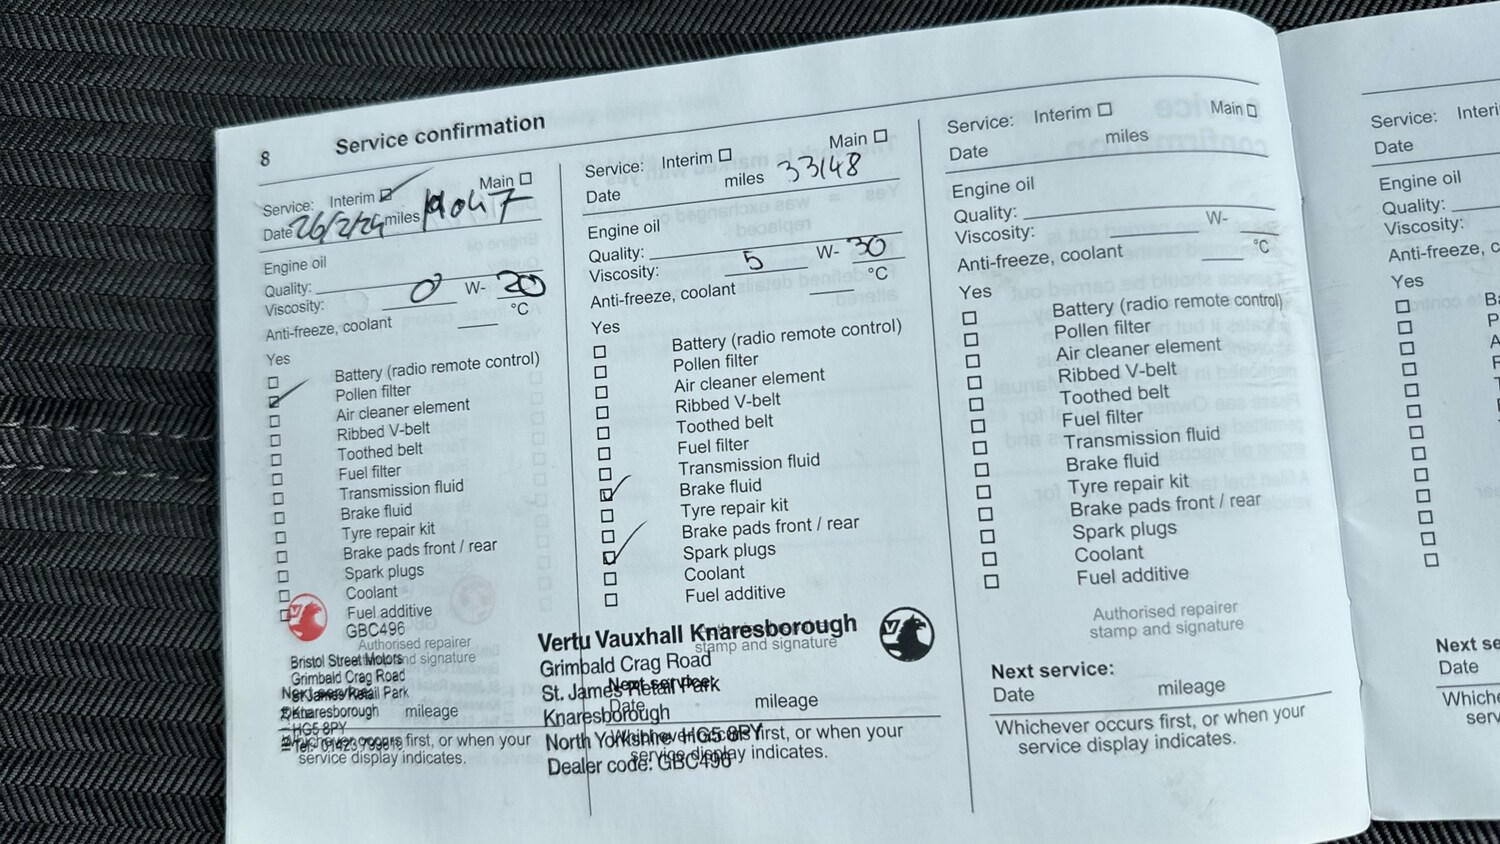 8 Service confirmation
Service: Interim Main
Date 26/2/24 miles 19047
Engine oil
Quality:
Viscosity: 0 W- 20
Anti-freeze, coolant °C
Yes
Battery (radio remote control)
Pollen filter
Air cleaner element
Ribbed V-belt
Toothed belt
Fuel filter
Transmission fluid
Brake fluid
Tyre repair kit
Brake pads front / rear
Spark plugs
Coolant
Fuel additive
GBC496
Authorised repairer
stamp and signature
Bristol Street Motors
Grimbald Crag Road
St. James Retail Park
Knaresborough
HG5 8PY
Next service:
Date mileage
Whichever occurs first, or when your
service display indicates.
Service: Interim Main
Date miles 33148
Engine oil
Quality:
Viscosity: 5 W- 30
Anti-freeze, coolant °C
Yes
Battery (radio remote control)
Pollen filter
Air cleaner element
Ribbed V-belt
Toothed belt
Fuel filter
Transmission fluid
Brake fluid
Tyre repair kit
Brake pads front / rear
Spark plugs
Coolant
Fuel additive
Vertu Vauxhall Knaresborough
Grimbald Crag Road
St. James Retail Park
Knaresborough
North Yorkshire HG5 8PY
Dealer code: GBC496
stamp and signature
Next service:
Date mileage
Whichever occurs first, or when your
service display indicates.
Service: Interim Main
Date miles
Engine oil
Quality:
Viscosity: W-
Anti-freeze, coolant °C
Yes
Battery (radio remote control)
Pollen filter
Air cleaner element
Ribbed V-belt
Toothed belt
Fuel filter
Transmission fluid
Brake fluid
Tyre repair kit
Brake pads front / rear
Spark plugs
Coolant
Fuel additive
Authorised repairer
stamp and signature
Next service:
Date mileage
Whichever occurs first, or when your
service display indicates.
Service:
Date
Engine oil
Quality:
Viscosity:
Anti-freeze,
Yes
Date